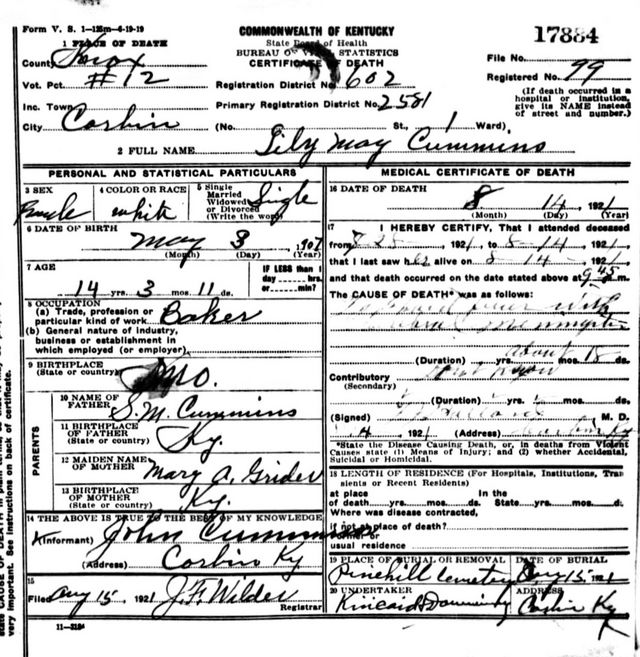 Form V. S. 1-125m-6-19-19
COMMONWEALTH OF KENTUCKY
State Board of Health
BUREAU OF VITAL STATISTICS
CERTIFICATE OF DEATH
17884
1 PLACE OF DEATH
County Knox
Vot. Pct #12
Inc. Town
City Corbin
Registration District No. 602
Primary Registration District No. 2581
(No. St., 1 Ward)
File No.
Registered No. 99
(If death occurred in a hospital or institution, give its NAME instead of street and number.)
2 FULL NAME Lily May Cummins
PERSONAL AND STATISTICAL PARTICULARS
3 SEX Female
4 COLOR OR RACE white
5 Single Married Widowed or Divorced (Write the word) Sigle
6 DATE OF BIRTH May 3, 1907
(Month) (Day) (Year)
7 AGE
14 yrs. 3 mos. 11 ds.
IF LESS than 1 day hrs. or min.?
8 OCCUPATION
(a) Trade, profession or particular kind of work Baker
(b) General nature of industry, business or establishment in which employed (or employer)
9 BIRTHPLACE
(State or country) Mo.
PARENTS
10 NAME OF FATHER S. M. Cummins
11 BIRTHPLACE OF FATHER (State or country) Ky.
12 MAIDEN NAME OF MOTHER Mary A. Grider
13 BIRTHPLACE OF MOTHER (State or country) Ky.
14 THE ABOVE IS TRUE TO THE BEST OF MY KNOWLEDGE
(Informant) John Cummins
(Address) Corbin Ky
15
Filed Aug 15, 1921 J. F. Wilder
Registrar
11-3184
MEDICAL CERTIFICATE OF DEATH
16 DATE OF DEATH 8 14, 1921
(Month) (Day) (Year)
17 I HEREBY CERTIFY, That I attended deceased
from 8-25-, 1921 to 8-14-, 1921
that I last saw her alive on 8-14-, 1921
and that death occurred on the date stated above at 9 45 m.
The CAUSE OF DEATH* was as follows:
fever with
about 18
(Duration) yrs. mos. ds.
Contributory
(Secondary)
(Duration) yrs. mos. ds.
(Signed) M. D.
1921 (Address)
*State the Disease Causing Death, or, in deaths from Violent Causes state (1) Means of Injury; and (2) whether Accidental, Suicidal or Homicidal.
18 LENGTH OF RESIDENCE (For Hospitals, Institutions, Transients or Recent Residents)
at place of death yrs. mos. ds. In the State yrs. mos. ds.
Where was disease contracted,
if not at place of death?
Former or usual residence
19 PLACE OF BURIAL OR REMOVAL Pinehill Cemetery
DATE OF BURIAL Aug 15, 1921
20 UNDERTAKER Kincaid
ADDRESS Corbin Ky
very important. See instructions on back of certificate.